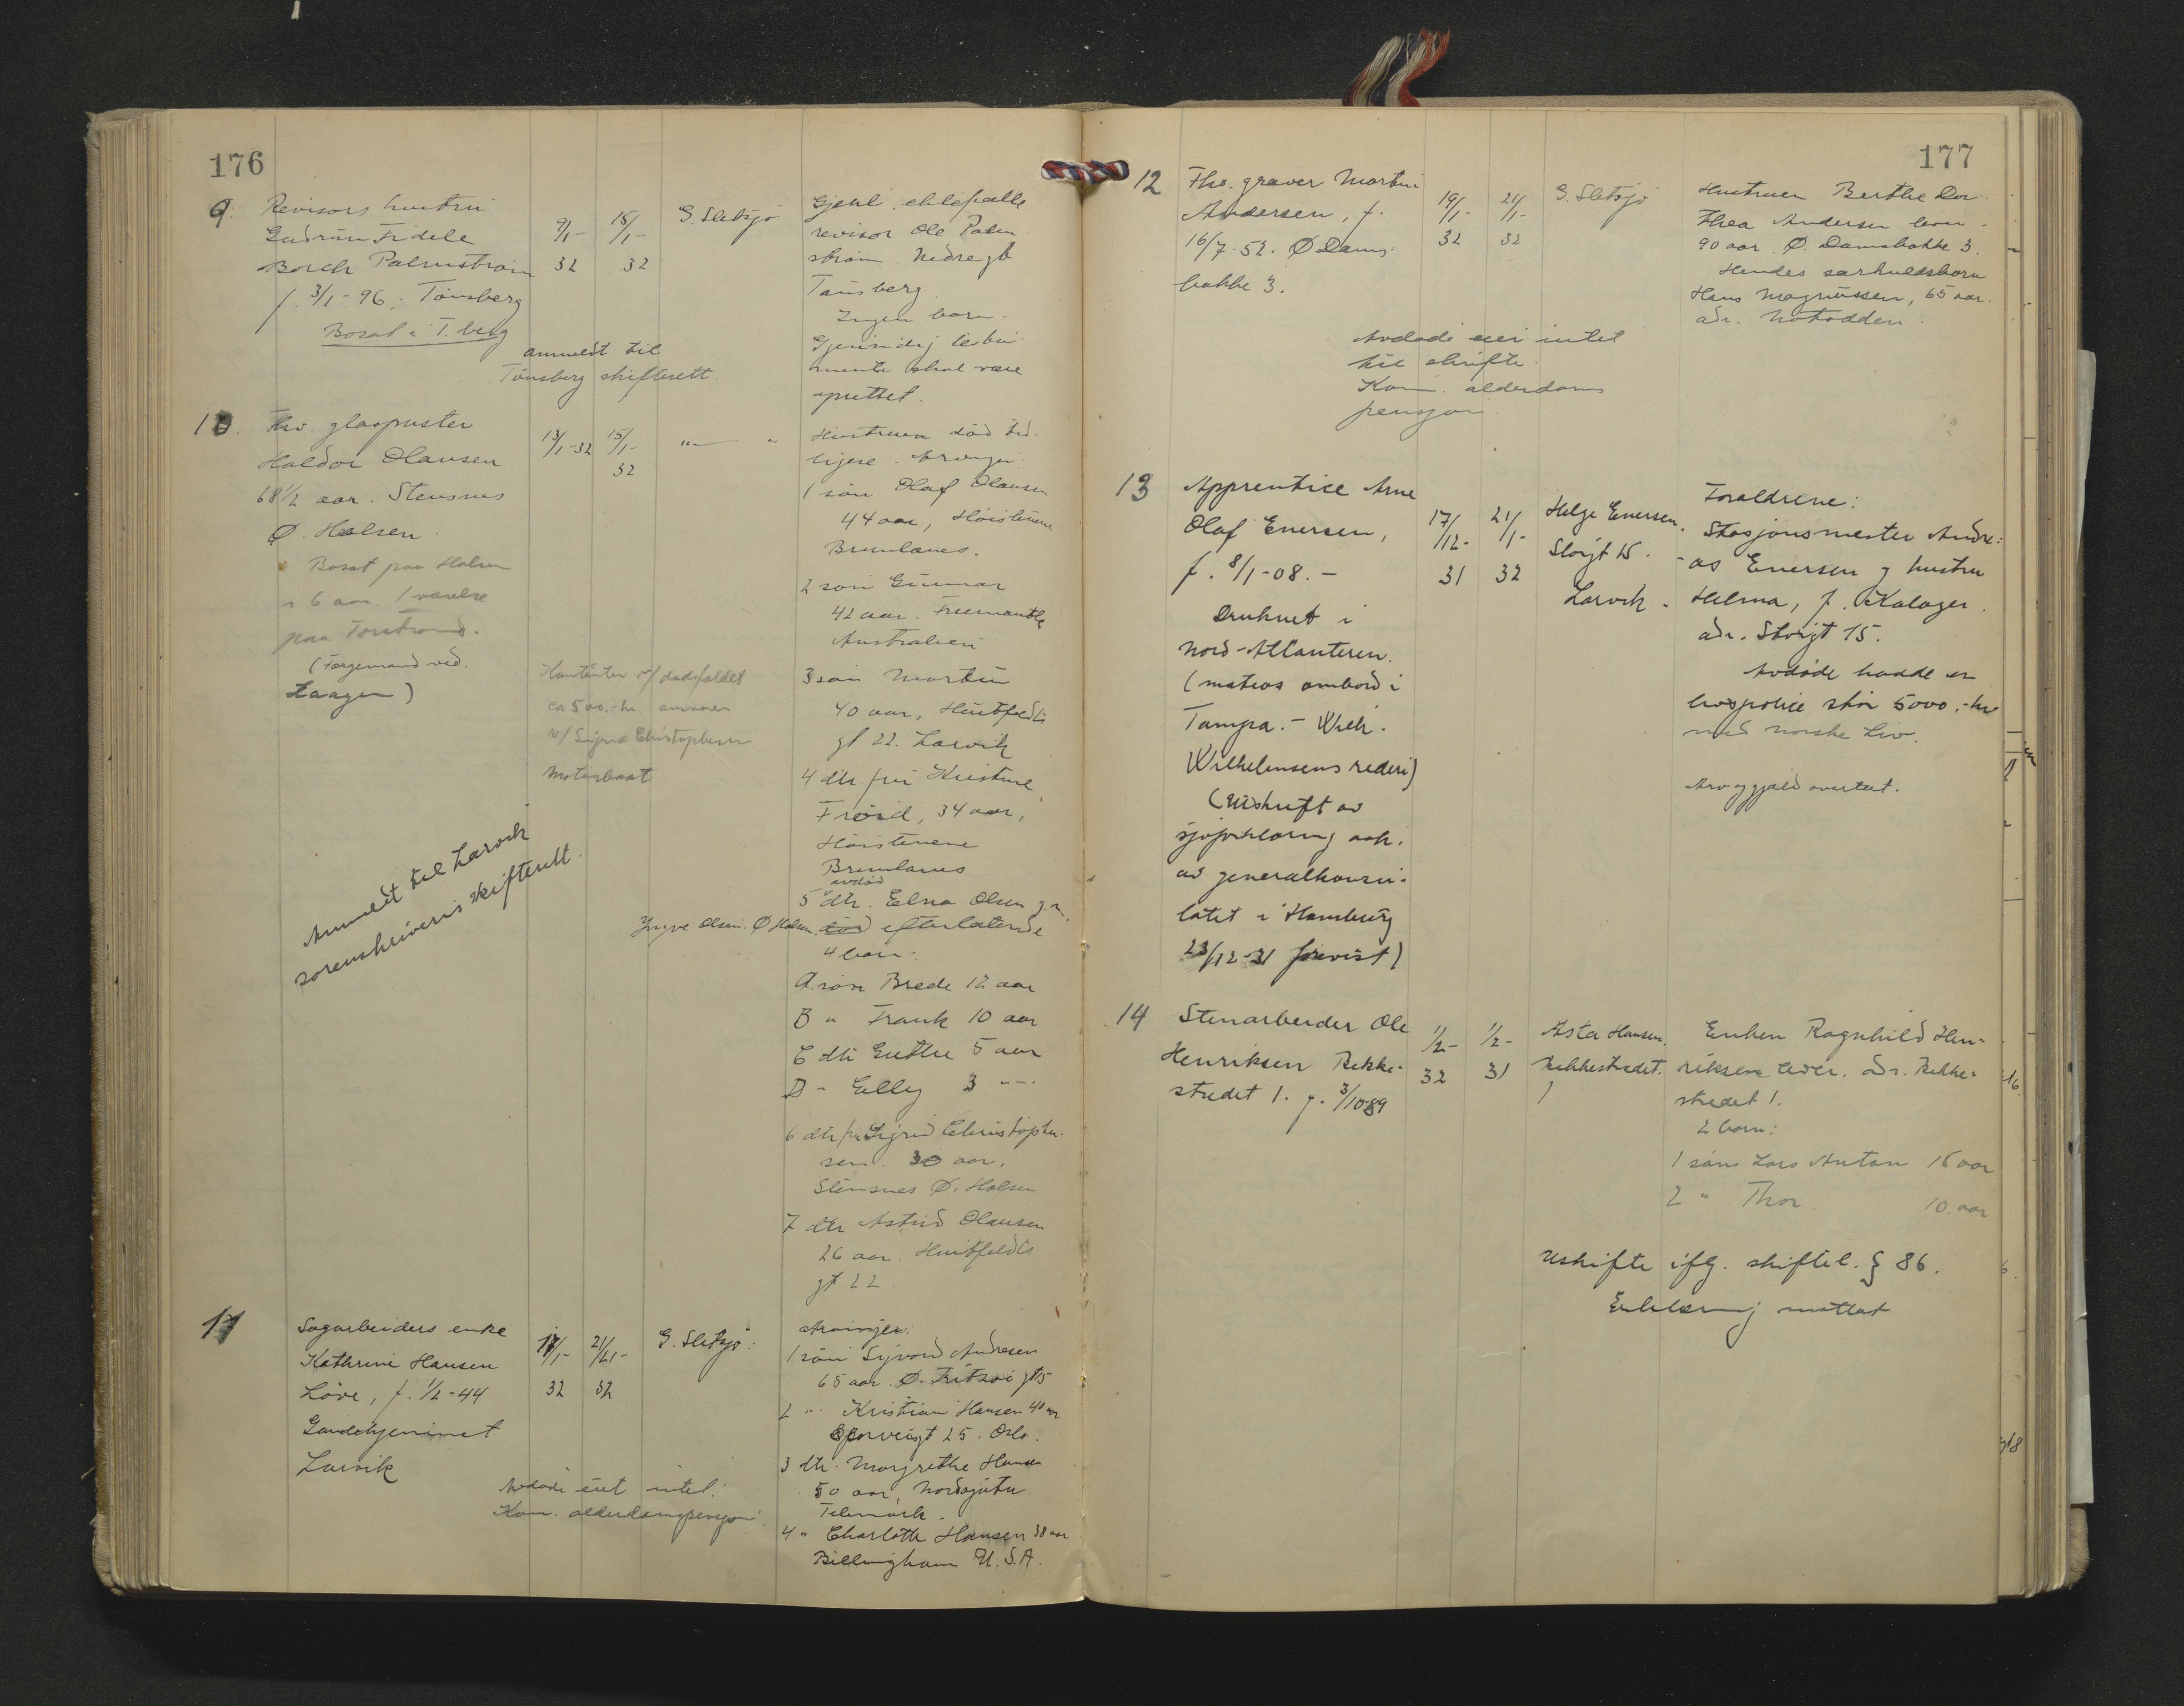 176
9. Revisors hustru
Gudrun Fidele
Borch Palmstrøm
f. 3/1-96. Tønsberg
Bosat i T.berg
9/1- 32
15/1- 32
G. Sletsjø
Gjenl. ektefælle
revisor Ole Palm
strøm Nedregt
Tønsberg
Ingen barn.
Gjensidig testa
mente skal være
oprettet.
anmeldt til
Tønsberg skifterett.
10. Fhv. glaspuster
Haldor Olausen
68 1/2 aar. Stensnes
Ø. Halsen
Bosat paa Halsen
i 6 aar. 1 værelse
paa Torstrand.
(Færgemand ved.
Laagen)
13/1-32
15/1- 32
" — "
Hustruen død tid
ligere. Arvinger:
1 søn Olaf Olausen
44 aar, Høistenene
Brunlanes.
2 søn Gunnar
42 aar. Freemantle
Australien
3 søn Martin
40 aar, Huitfeldts
gt 22. Larvik
4 dtr. fru Kristine
Frøid, 34 aar,
Høistenene
Brunlanes
avdød
5 dtr. Elna Olsen g.m.
Yngve Olsen. Ø Halsen. død efterlatende
4 barn:
A søn Brede 12 aar
B " Frank 10 aar
C dtr Guthe 5 aar
D - Gelly 3 "
6 dtr fru Sigrid Christopher
sen. 30 aar.
Stensnes Ø. Halsen
7 dtr Astrid Olausen
26 aar. Huitfeldts
gt 22
Kontanter v/ dødsfaldet
ca 500.- kr.
v/ Sigrid Christophersen
Motorbaat
Anmeldt til Larvik
sorenskriveris skifterett.
11 Sagarbeiders enke
Kathrine Hansen
Løve, f. 1/2-44
Gamlehjemmet
Larvik
17/1- 32
21/1- 32
G. Sletsjø:
Arvinger:
1 søn Sigvard Andresen
65 aar. Ø. Fritzøe gt 5
2 " Kristian Hansen 40 aar
Sporveisgt 25. Oslo.
3 dtr. Margrethe Hansen
50 aar, Nordagutu
Telemark.
4 " Charlotte Hansen 38 aar
Billingham U.S.A.
Avdøde eiet intet.
Kom. alderdomspensjon.
177
12 Fhv. graver Martin
Andersen, f.
16/7-52. Ø Dams
bakke 3.
19/1- 32
21/1- 32
G. Sletsjø
Hustruen Berthe Do
thea Andersen
90 aar. Ø. Damsbakke 3.
Hendes særkuldsbarn
Hans Magnussen, 65 aar.
adr. Notodden.
Avdøde eier intet
til skifte.
Kom. alderdoms
pensjon
13 Apprentice Arne
Olaf Enersen,
f. 8/1-08. -
Druknet i
Nord-Atlanteren.
(matros ombord i
Tampa. - Wilh.
Wilhelmsens rederi)
(Utskrift av
sjøforklaring opt.
av generalkonsu-
latet i Hamburg
23/12-31 forevist)
17/12- 31
21/1- 32
Helge Enersen.
Storgt 15.
Larvik.
Foreldrene:
Stasjonsmester Andre-
as Enersen og hustru
Helma, f. Kalager.
adr. Storgt 15.
Avdøde hadde en
livspolice stor 5000.- kr
med Norske Liv.
Arv og gjeld overtat.
14 Stenarbeider Ole
Henriksen Bekke-
stredet 1. f. 3/10-89
1/2- 32
1/2- 31
Asta Hansen.
Bekkestredet.
1
Enken Ragnhild Hen-
riksen lever. Adr. Bekke-
stredet 1.
2 barn:
1 søn Lars Anton 15 aar
2 " Thor. 10 aar
Uskifte ifg. skiftel. § 86.
Erklæring mottat